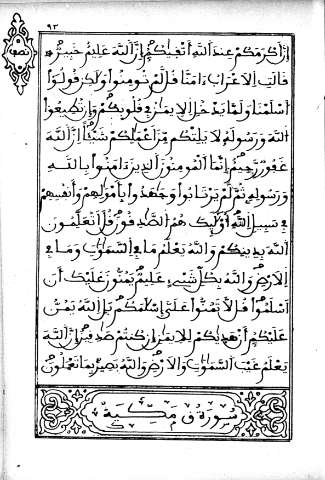 ٩٣
نصف
إن أكرمكم عند الله أتقيكم إن الله عليم خبير
قالت الاعراب ءامنا قل لم تومنوا ولكن قولوا
أسلمنا ولما يدخل الايمن في قلوبكم وإن تطيعوا
الله ورسوله لا يلتكم من أعملكم شيئا إن الله
غفور رحيم إنما المومنون الذين ءامنوا بالله
ورسوله ثم لم يرتابوا وجهدوا بأمولهم وأنفسهم
في سبيل الله أوليك هم الصدقون قل أتعلمون
الله بدينكم والله يعلم ما في السموت وما في
الارض والله بكل شيء عليم يمنون عليك أن
أسلموا قل لا تمنوا علي إسلمكم بل الله يمن
عليكم أن هديكم للايمن إن كنتم صدقين إن الله
يعلم غيب السموت والارض والله بصير بما تعملون
سورة ق مكية